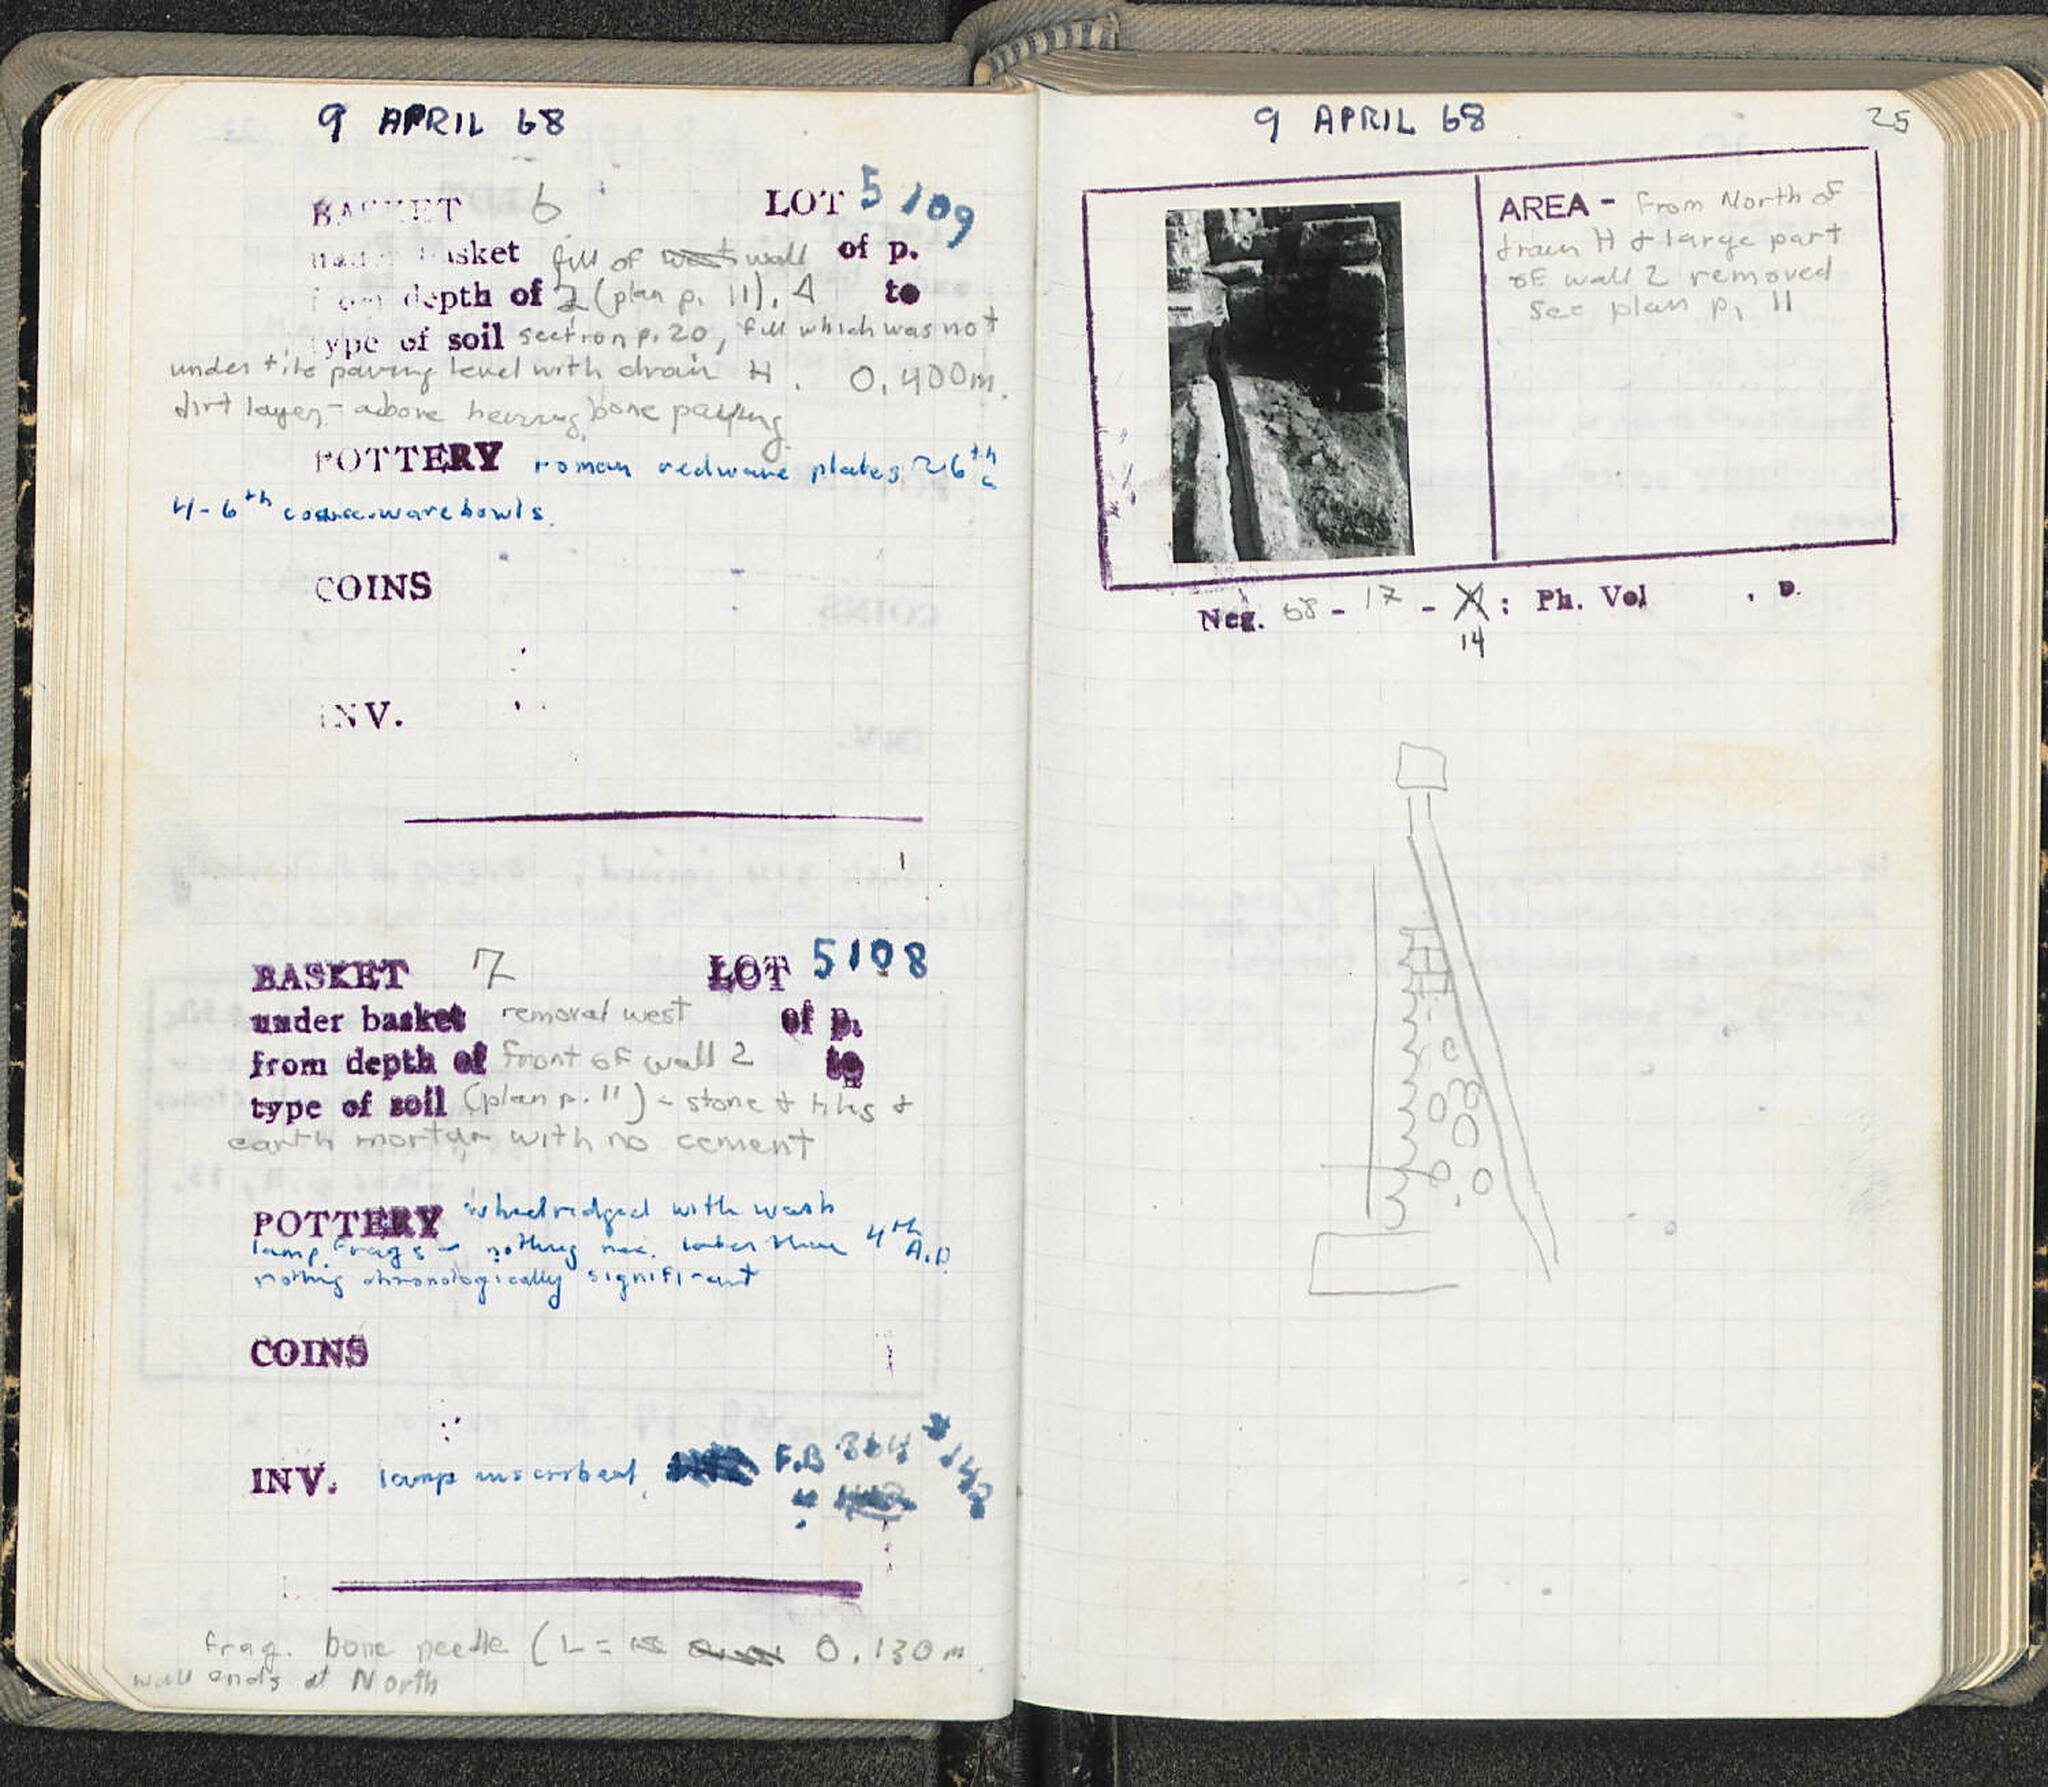 9 APRIL 68
BASKET 6 LOT 5109
under basket fill of wall of p.
from depth of 2 (plan p. 11), 4 to
type of soil section p. 20, fill which was not
under tile paving level with drain H. 0,400m.
dirt layer - above herring bone paving
POTTERY roman redware plates ~6th c
4-6th coarse ware bowls.
COINS
INV.
BASKET 7 LOT 5108
under basket removal west of p.
from depth of front of wall 2 to
type of soil (plan p. 11) - stone & tiles &
earth mortar with no cement
POTTERY wheelridged with wash
lamp frags - nothing nec. later than 4th A.D.
nothing chronologically significant
COINS
INV. lamp inscribed, F.B 364 # 148
frag. bone needle (L = 0.130m.
wall ends at North
9 APRIL 68
25
AREA - From North of
drain H & large part
of wall 2 removed
see plan p. 11
Neg. 68 - 17 - : Ph. Vol , p.
14